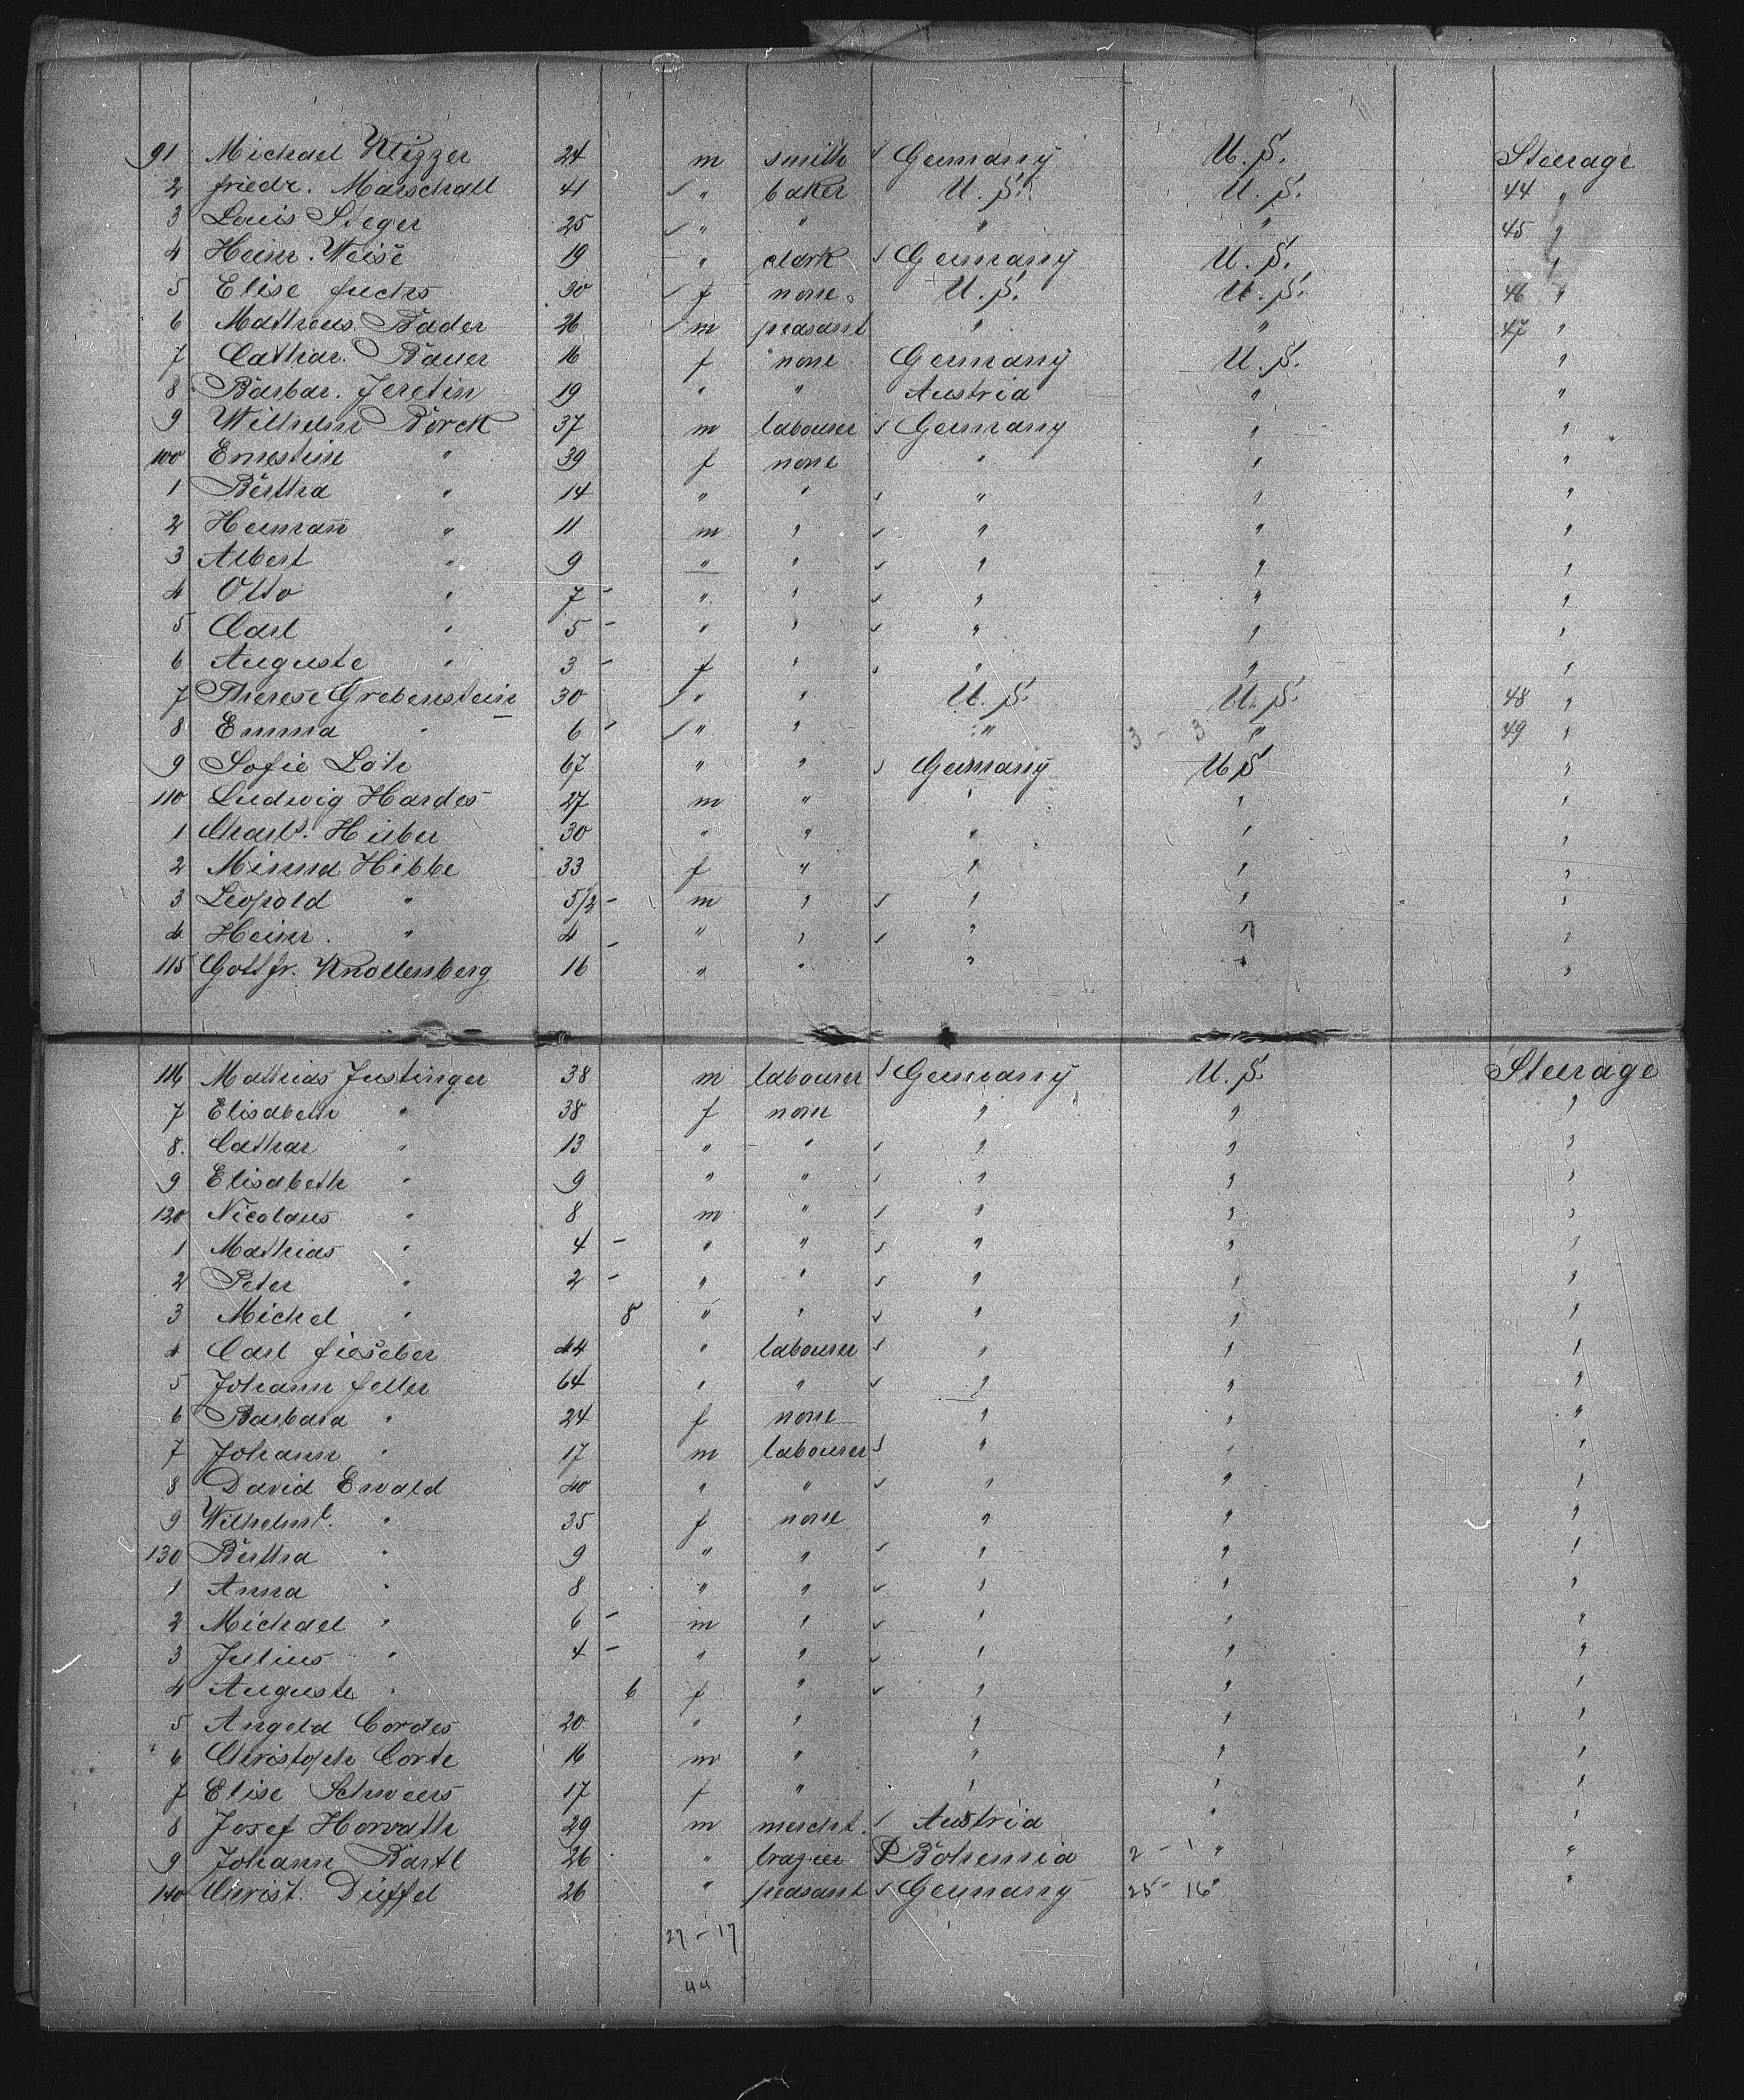 91 Michael Klizzer 24 m smith Germany U.S. Steerage
2 friedr. Marschall 41 " baker U.S. U.S. 44 "
3 Louis Steger 25 " " " " 45 "
4 Heinr. Weise 19 " clark Germany U.S. "
5 Elise fuchs 30 f none U.S. U.S. 46 "
6 Matheus Bader 26 m peasant " " 47 "
7 Cathar. Bauer 16 f none Germany U.S. "
8 Barbar. Jeretin 19 " " Austria " "
9 Wilhelm Borck 37 m labourer Germany " "
100 Ernestine " 39 f none " " "
1 Bertha " 14 " " " " "
2 Hermañ " 11 m " " " "
3 Albert " 9 " " " " "
4 Otto " 7 - " " " " "
5 Carl " 5 - " " " " "
6 Auguste " 3 - f " " " "
7 Therese Grebenstein 30 " " U.S. U.S. 48 "
8 Emma " 6 - " " " 3 - 3 " 49 "
9 Sofie Löh 67 " " Germany U S "
110 Ludwig Hardes 27 m " " " "
1 Charl. Hieber 30 " " " " "
2 Minna Hibbe 33 f " " " "
3 Leopold " 5/2 - m " " " "
4 Heinr. " 4 - " " " " "
115 Gottfr. Knollenberg 16 " " " " "
116 Mathias Justinger 38 m labourer Germany U.S. Steerage
7 Elisabeth " 38 f none " " "
8. Cathar " 13 " " " " "
9 Elisabeth " 9 " " " " "
120 Nicolaus " 8 m " " " "
1 Mathias " 4 - " " " " "
2 Peter " 2 - " " " " "
3 Michel " 8 " " " " "
4 Carl 44 " labourer " " "
5 Johann feller 64 " " " " "
6 Barbara " 24 f none " " "
7 Johann " 17 m labourer " " "
8 David Ewald 40 " " " " "
9 Wilhelml. " 35 f none " " "
130 Bertha " 9 " " " " "
1 Anna " 8 " " " " "
2 Michael " 6 - m " " " "
3 Julius " 4 - " " " " "
4 Auguste " 6 f " " " "
5 Angela Cordes 20 " " " " "
6 Christoph Corte 16 m " " " "
7 Elise Schweers 17 f " " " "
8 Josef Horvath 29 m mercht. Austria " "
9 Johann Bartl 26 " brazier Bohemia 2 - 1 " "
140 Christ. Düffel 26 " peasant Germany 25 - 16 " "
27 - 17
44